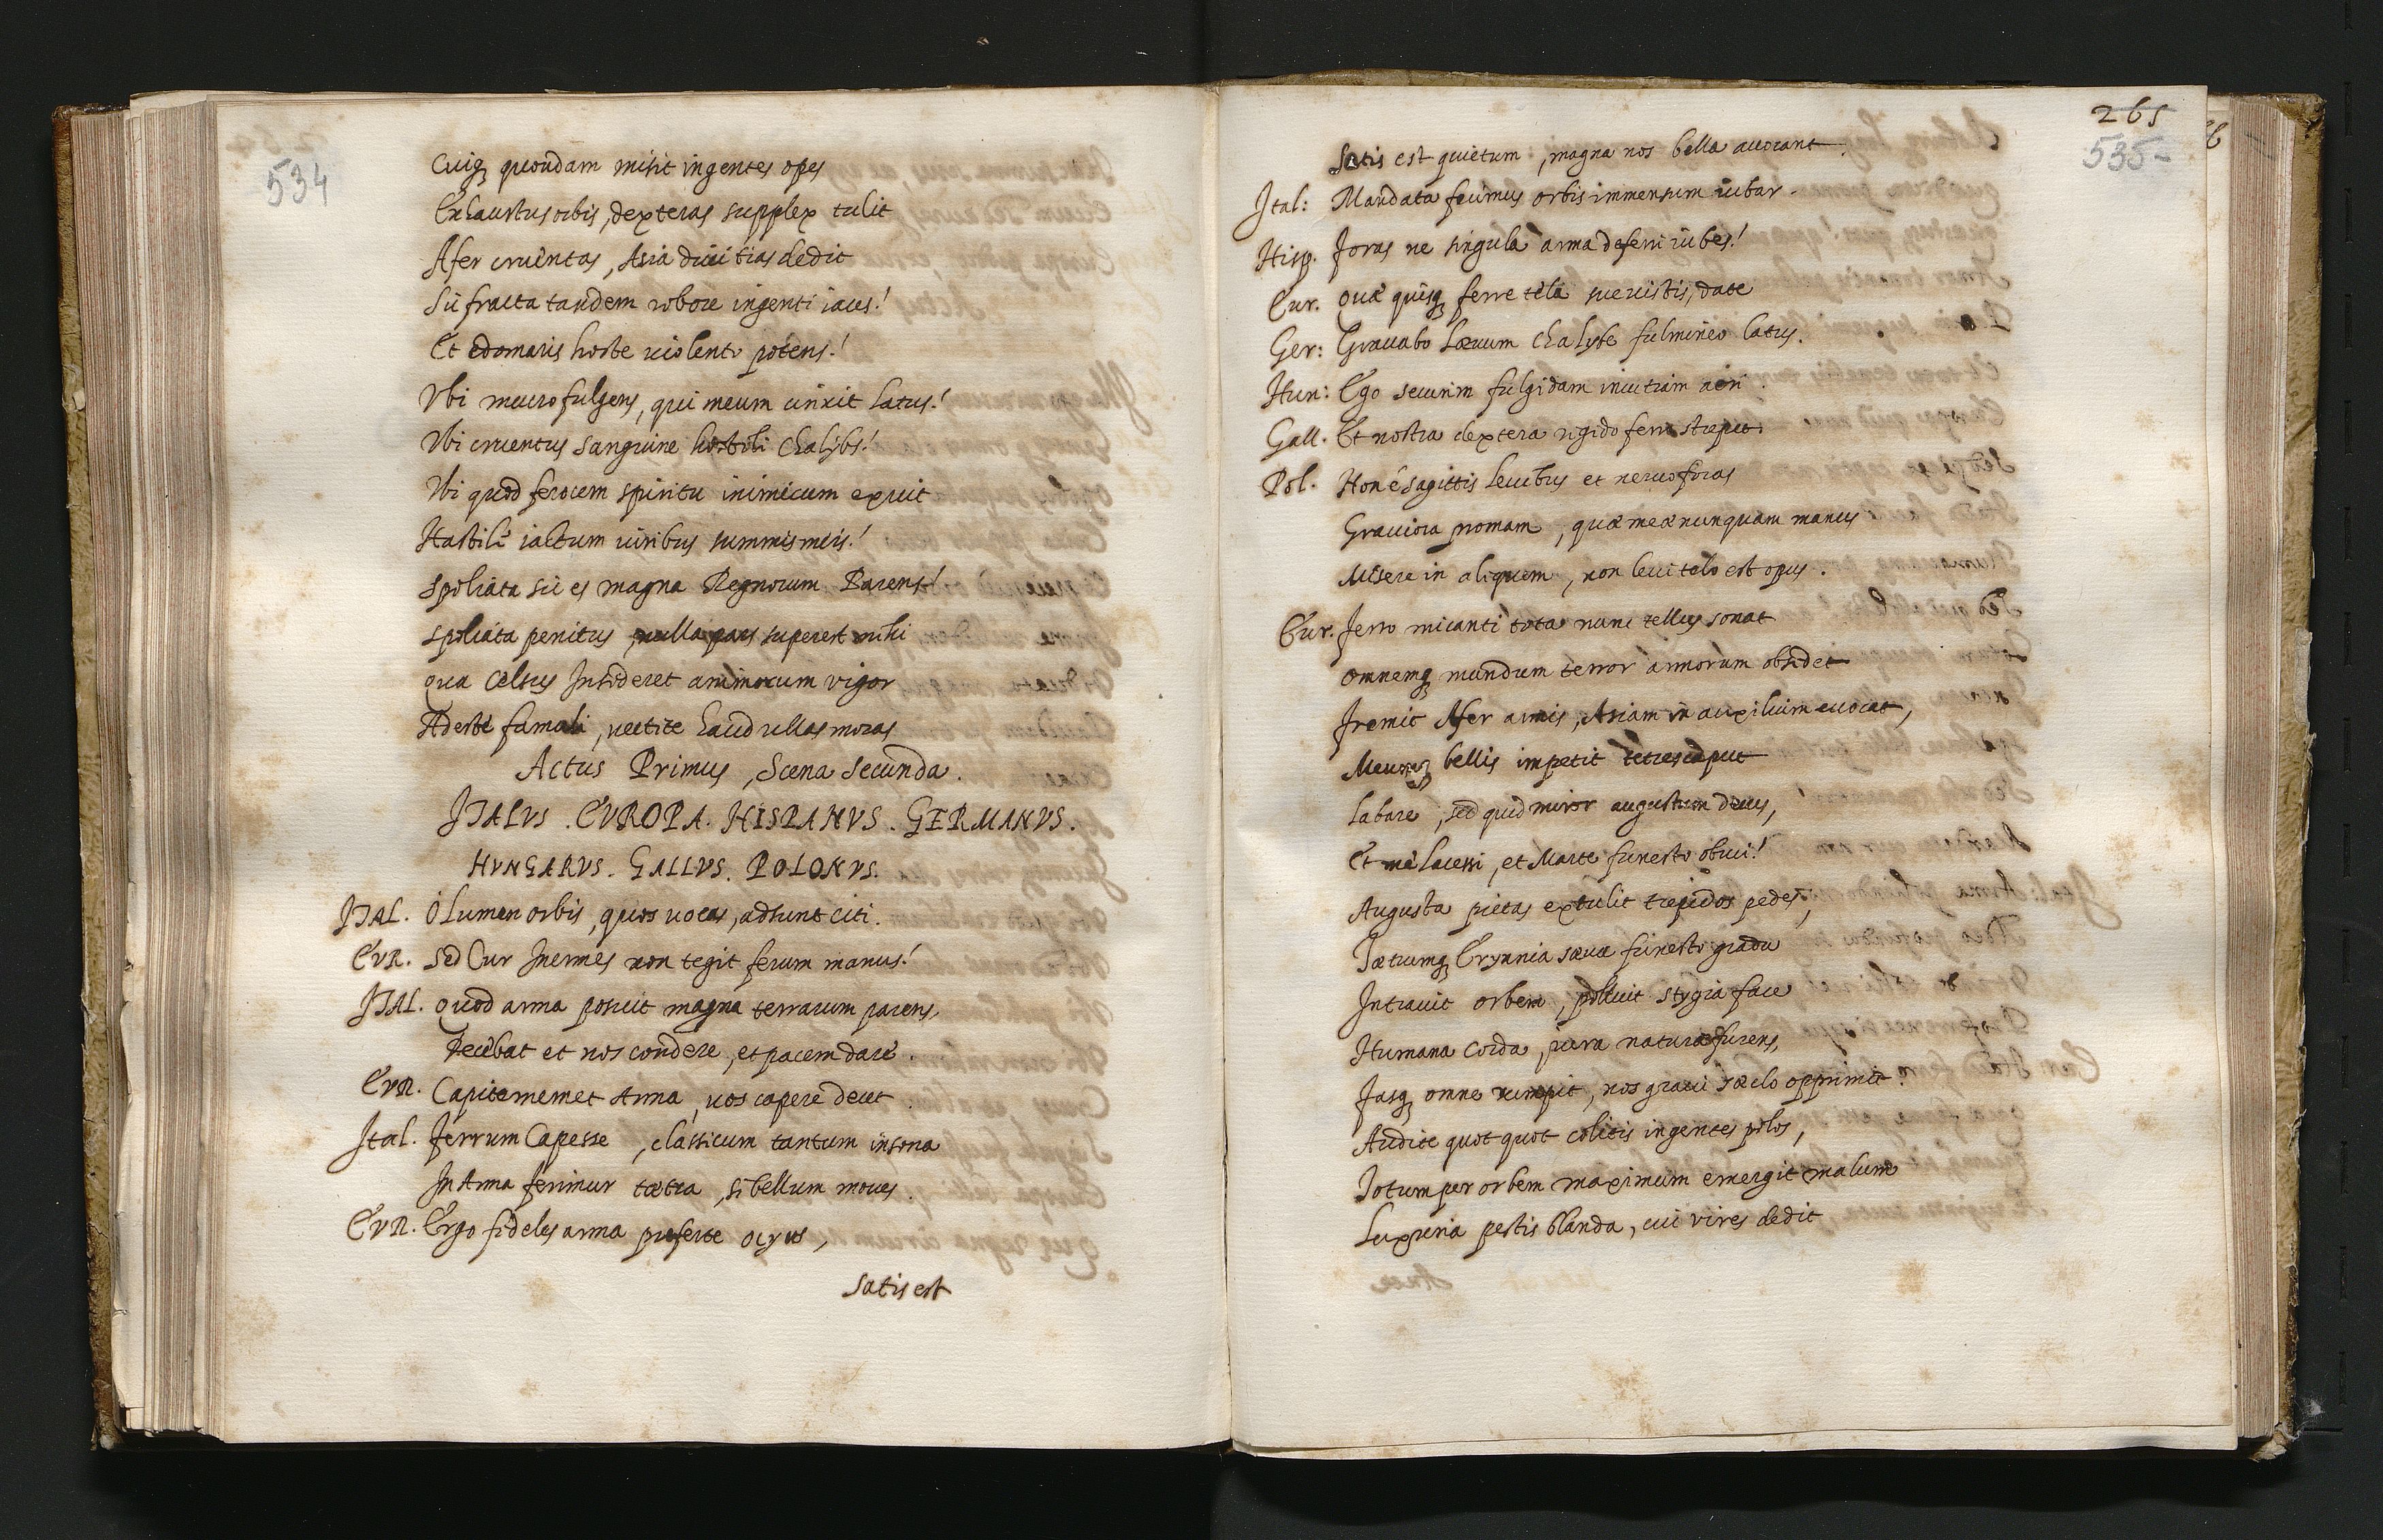 534
Cuiq quondam misit ingentes opes
Exhaustus orbis, dexteras supplex tulit
Afer cruentas, Asia diuitias dedit
Sic fracta tandem robore ingenti iaces!
Et edomaris hoste uiolento potens!
Vbi mucro fulgens, qui meum cinxit latus!
Vbi cruentus sanguine hostili Chalybs!
Vbi quod ferocem spiritu inimicum exuit
Hastile iactum uiribus summis meis!
Spoliata sic es magna Regnorum Parens!
Spoliata penitus, nulla pars superest mihi
qua Celsus Insideret animorum vigor
Adeste famuli, nectite haud ullas moras
Actus Primus, Scena Secunda.
ITALVS. EVROPA. HISPANVS. GERMANVS.
HVNGARVS. GALLVS. POLONVS.
ITAL. Ò Lumen orbis, quos uocas, adsunt citi.
EVR. Sed Cur Inermes non tegit ferrum manus!
ITAL. Quod arma posuit magna terrarum parens,
Decebat et nos condere, et pacem dare.
EVR. Capitememet Arma, uos capere decet.
Ital. Ferrum Capesse, classicum tantum insona
In Arma ferimur tætra, si bellum moues.
EVR. Ergo fideles arma proferte ocyus,
Satis est
265
535-
Satis est quietum, magna nos bella auocant.
Ital: Mandata ferimus orbis immensum iubar.
Hisp. Foras ne singula arma deferri iubes!
Eur. Quæ quisq ferre tela sueuistis, date
Ger: Grauabo Læuum chalybe fulmineo latus.
Hun: Ego securim fulgidam incutiam aeri.
Gall. Et nostra dextera rigido ferro strepet.
Pol. Non è sagittis leuibus et neruo foras
Grauiora promam, quæ meæ nunquam manus
Misere in aliquem, non leui telo est opus.
Eur. Ferro micanti tota nunc tellus sonat
Omnemq mundum terror armorum obsidet
Fremit Afer armis, Asiam in auxilium euocat,
Meumq bellis impetit caput
Labare, sed quid miror augustum decus,
Et me lacessi, et Marte funesto obrui!
Augusta pietas extulit trepidos pedes,
Tætrumq Erynnia sæua funesto gradu
Intrauit orbem, polluit stygia face
Humana corda, iura naturæ furens,
Fasq omne rumpit, nos graui sæclo opprimit.
Audite quot quot colitis ingentes polos,
Totum per orbem maximum emergit malum
Luxuria pestis blanda, cui vires dedit